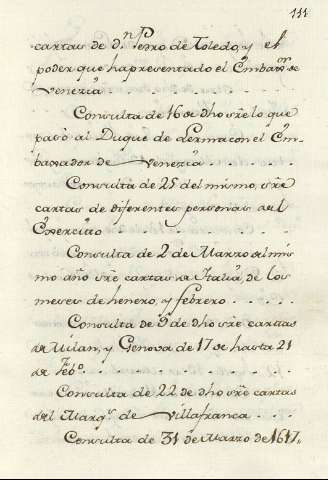 111
cartas de d.ⁿ Pedro de Toledo, y el
poder que ha presentado el Embax.ᵒʳ de
Venecia
Consulta de 16 de dho sr̃e lo que
pasò al Duque de Lerma con el Em-
baxador de Venecia . . . . . .
Consulta de 25 del mismo, sr̃e
cartas de diferentes personas del
Exercito . . . . . . . .
Consulta de 2 de Marzo del mis
mo año sr̃e cartas de Italia de los
meses de henero, y febrero . . . . .
Consulta de 9 de dho sr̃e cartas
de Milan, y Genova de 17 de hasta 21
de Feb.º . . . . . . . .
Consulta de 22 de dho sr̃e cartas
del Marq.ˢ de Villafranca . . . .
Consulta de 31 de Marzo de 1617.